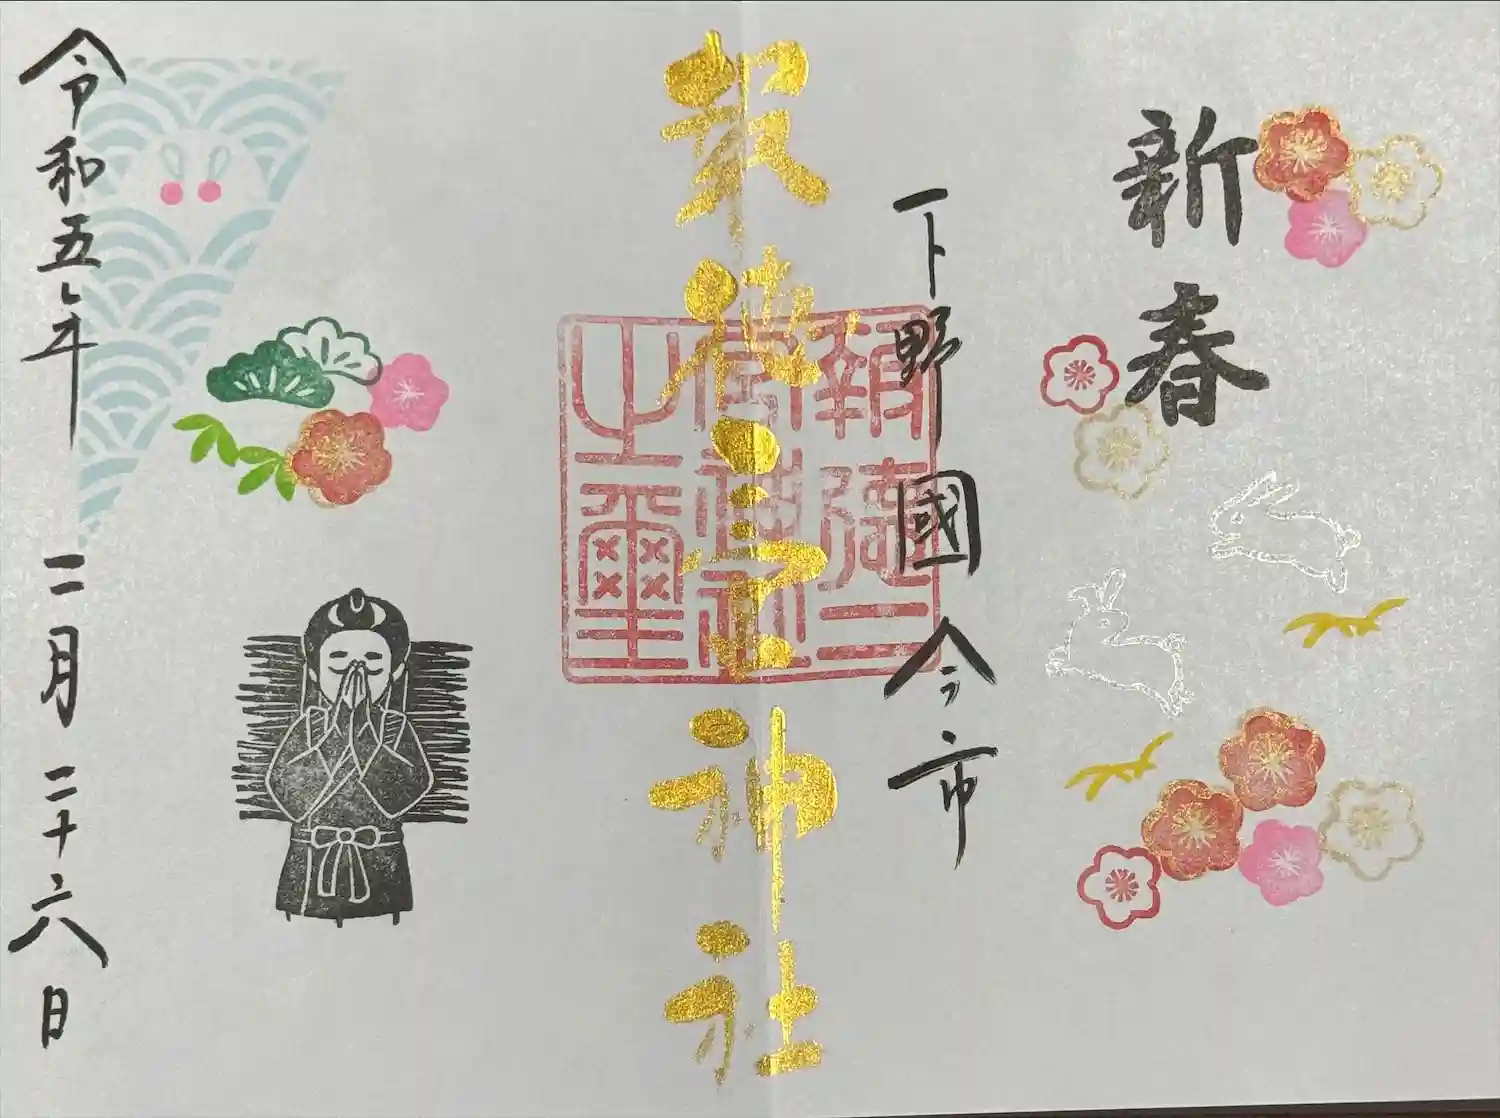 新春
下野國今市
報徳二宮神社
報徳二
宮神社
之璽
令和五年二月二十六日